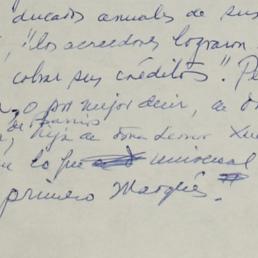 ducados anuales de sus
, "los acreedores lograron
cobrar sus créditos". Pe
o por mejor decir, a
de
, hija de doña Leonor
lo fue universal
primero Marqués.